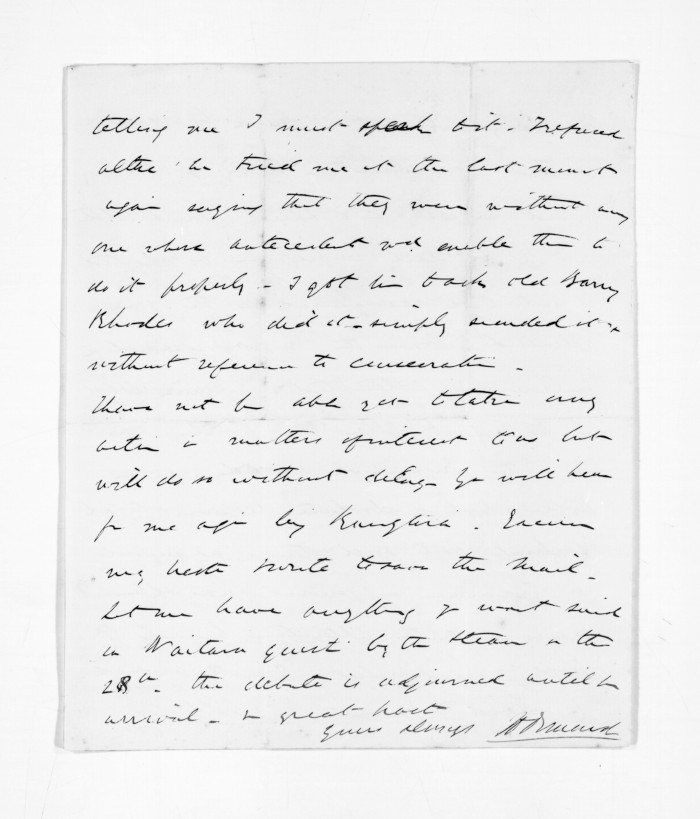 telling me I must speak to it. I refused
altho' he tried me at the last minute
again saying that they were without any
one whose antecedents wd. enable them to
do it properly - I got him back old Barny
Rhodes who did it - simply seconded it &
without reference to
I have not be able yet to take any
action in matters of interest to us but
will do so without delay - You will hear
fr me again by Rangatira. Excuse
my haste I write to save the Mail -
Let me have anything you want said
on Waitara quest. by the Steamer on the
28th. The debate is adjourned until its
arrival - In great haste
Yours always